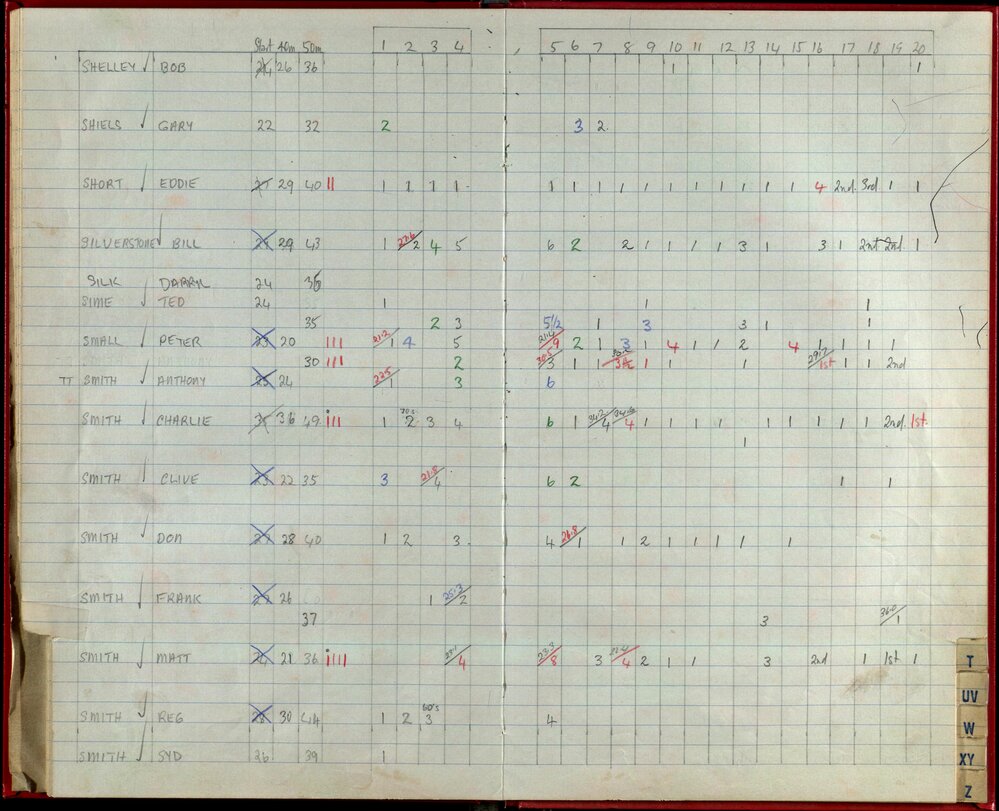 Start 40m 50m 1 2 3 4 5 6 7 8 9 10 11 12 13 14 15 16 17 18 19 20
SHELLEY ✓ BOB 24 26 36 1 1
SHIELS ✓ GARY 22 32 2 3 2
SHORT ✓ EDDIE 29 40 II 1 1 1 1 1 1 1 1 1 1 1 1 1 1 1 4 2nd 3rd 1 1
SILVERSTONE ✓ BILL 29 43 1 27.6/2 4 5 6 2 2 1 1 1 1 3 1 3 1 2nd 2nd 1
SILK DARRYL 24 36
SIME ✓ TED 24 1 1 1
35 2 3 5½ 1 3 3 1 1
SMALL ✓ PETER 23 20 III 21.2/1 4 5 21.4/9 2 1 3 1 4 1 2 4 1 1 1 1
30 III 2 30.5/3 1 1 1 1 1 29.7/1st 1 1 2nd
TT SMITH ✓ ANTHONY 25 24 22.5/1 3 6
SMITH ✓ CHARLIE 36 49 IIII 1 2 3 4 6 1 34.2/4 34.6/4 1 1 1 1 1 1 1 1 1 2nd 1st
1
SMITH ✓ CLIVE 23 22 35 3 21.8/4 6 2 1 1
SMITH ✓ DON 28 40 1 2 3 4 26.8/1 1 2 1 1 1 1 1
SMITH ✓ FRANK 26 1 25.3/2
37 3 36.0/1
SMITH ✓ MATT 21 36 IIIII 4 23.3/8 3 4 2 1 1 3 2nd 1 1st 1
T
UV
SMITH ✓ REG 28 30 44 1 2 60's 3 4
W
SMITH ✓ SYD 26 39 1
XY
Z